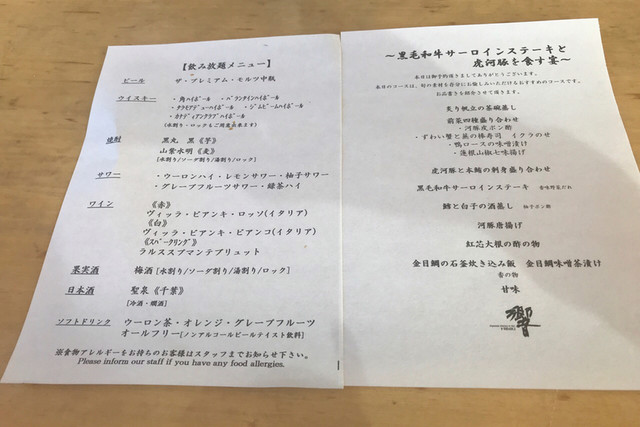 【飲み放題メニュー】
ビール ザ・プレミアム・モルツ中瓶
ウイスキー ・角ハイボール ・バランタインハイボール
・タラモアデューハイボール ・ジムビームハイボール
・カナディアンクラブハイボール
(水割り・ロックもご用意出来ます)
焼酎 黒丸 黒《芋》
山紫水明《麦》
[水割り/ソーダ割り/湯割り/ロック]
サワー ・ウーロンハイ・レモンサワー・柚子サワー
・グレープフルーツサワー・緑茶ハイ
ワイン 《赤》
ヴィッラ・ビアンキ・ロッソ(イタリア)
《白》
ヴィッラ・ビアンキ・ビアンコ(イタリア)
《スパークリング》
ラルススブマンテブリュット
果実酒 梅酒 [水割り/ソーダ割り/湯割り/ロック]
日本酒 聖泉《千葉》
[冷酒・燗酒]
ソフトドリンク ウーロン茶・オレンジ・グレープフルーツ
オールフリー[ノンアルコールビールテイスト飲料]
※食物アレルギーをお持ちのお客様はスタッフまでお知らせ下さい。
Please inform our staff if you have any food allergies.
～黒毛和牛サーロインステーキと
虎河豚を食す宴～
本日は御予約頂きましてありがとうございます。
本日のコースは、旬の素材を存分にお愉しみいただけるおすすめのコースです。
お品書きを紹介させて頂きます。
炙り帆立の茶碗蒸し
前菜四種盛り合わせ
・河豚皮ポン酢
・ずわい蟹と菜の棒寿司 イクラのせ
・鴨ロースの味噌漬け
・蓮根山椒七味揚げ
虎河豚と本鮪の刺身盛り合わせ
黒毛和牛サーロインステーキ 香味野菜だれ
鱈と白子の酒蒸し 柚子ポン酢
河豚唐揚げ
紅芯大根の酢の物
金目鯛の石釜炊き込み飯 金目鯛味噌茶漬け
香の物
甘味
響
HIBIKI